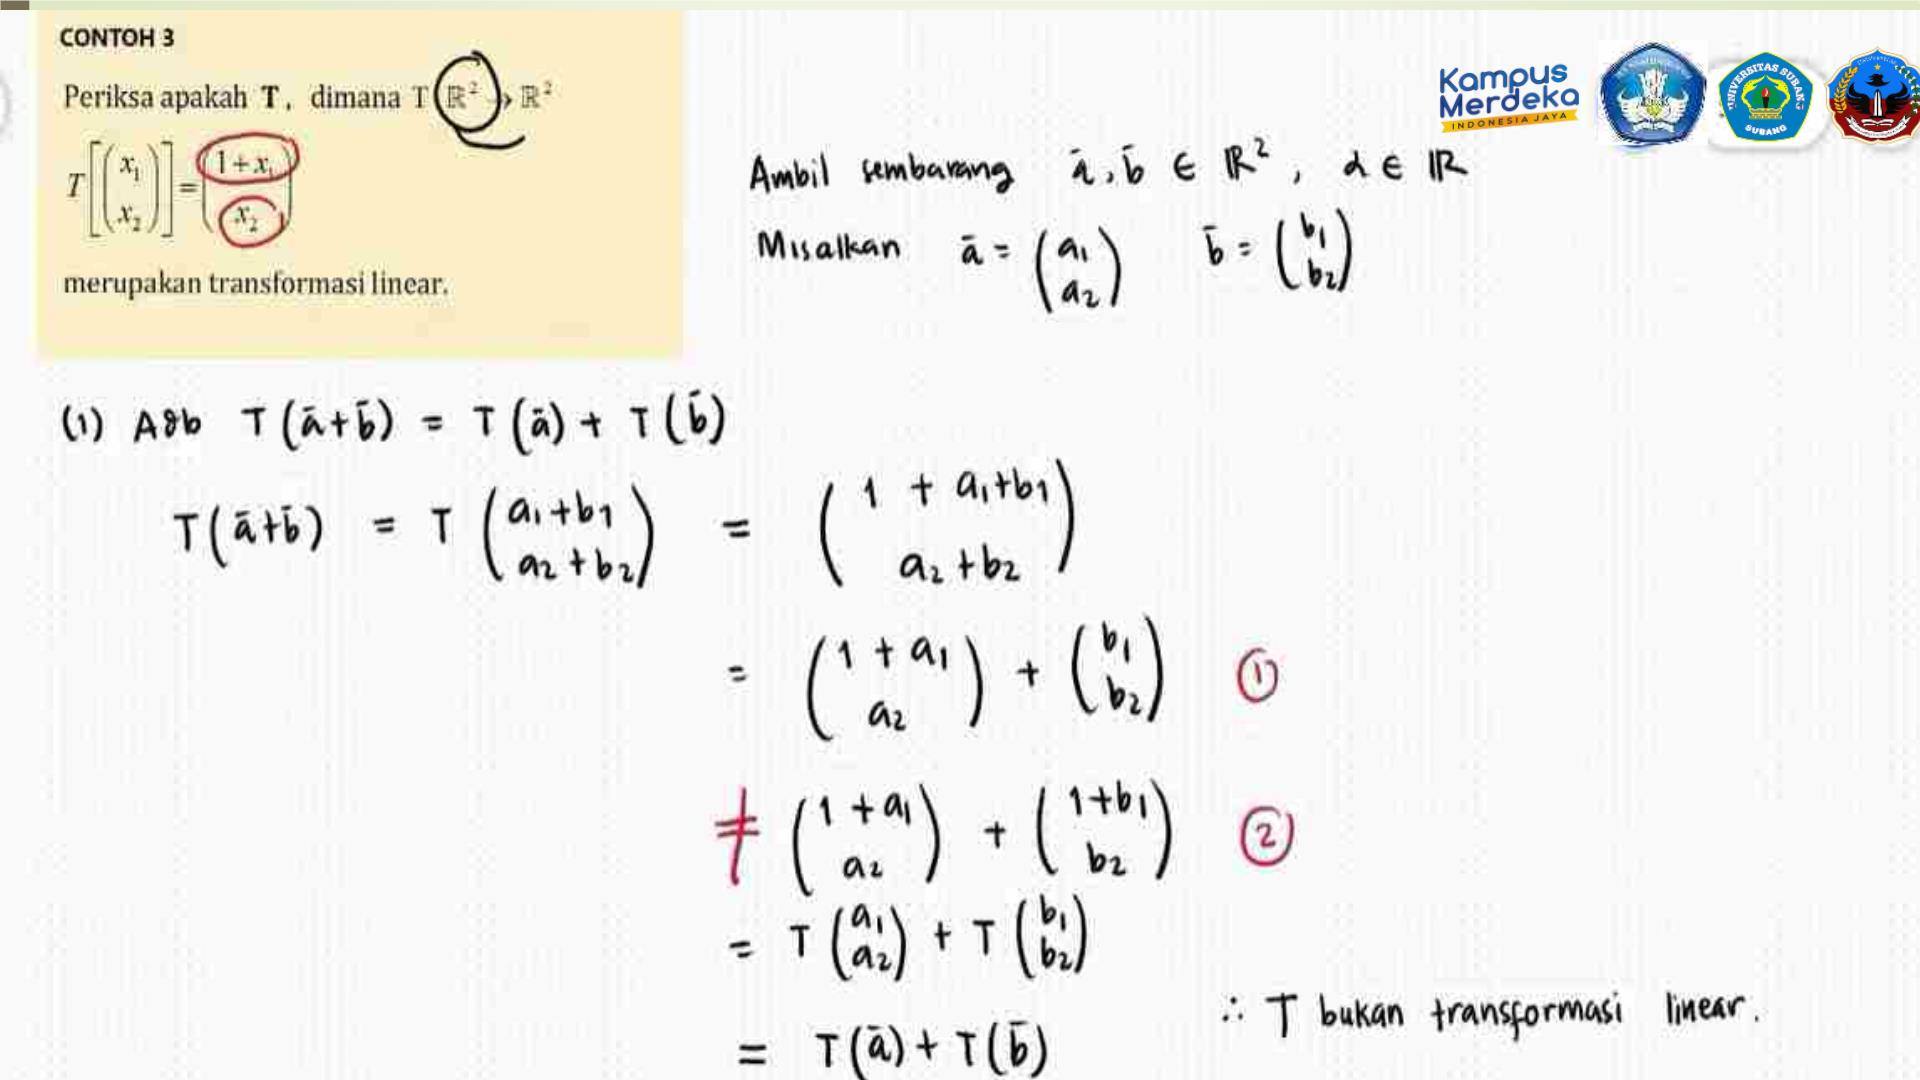 CONTOH 3
Periksa apakah T, dimana T ℝ² → ℝ²
T[(x₁ x₂)] = (1+x₁ x₂)
merupakan transformasi linear.
Kampus
Merdeka
INDONESIA JAYA
UNIVERSITAS SUBANG
SUBANG
Ambil sembarang ā, b̄ ∈ ℝ², α ∈ ℝ
Misalkan ā = (a₁ a₂) b̄ = (b₁ b₂)
(1) Adb T(ā+b̄) = T(ā) + T(b̄)
T(ā+b̄) = T(a₁+b₁ a₂+b₂) = (1 + a₁+b₁ a₂+b₂)
= (1 + a₁ a₂) + (b₁ b₂) ①
≠ (1 + a₁ a₂) + (1+b₁ b₂) ②
= T(a₁ a₂) + T(b₁ b₂)
= T(ā) + T(b̄)
∴ T bukan transformasi linear.